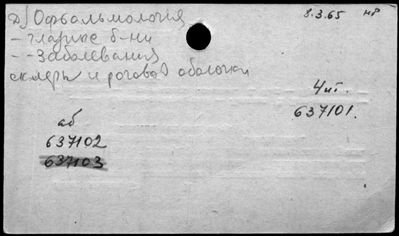 Д) Офтальмология 8.3.65 нр
- глазные б-ни
-- Заболевания
склеры и роговой оболочки
Чит.
637101.
аб
637102
637103